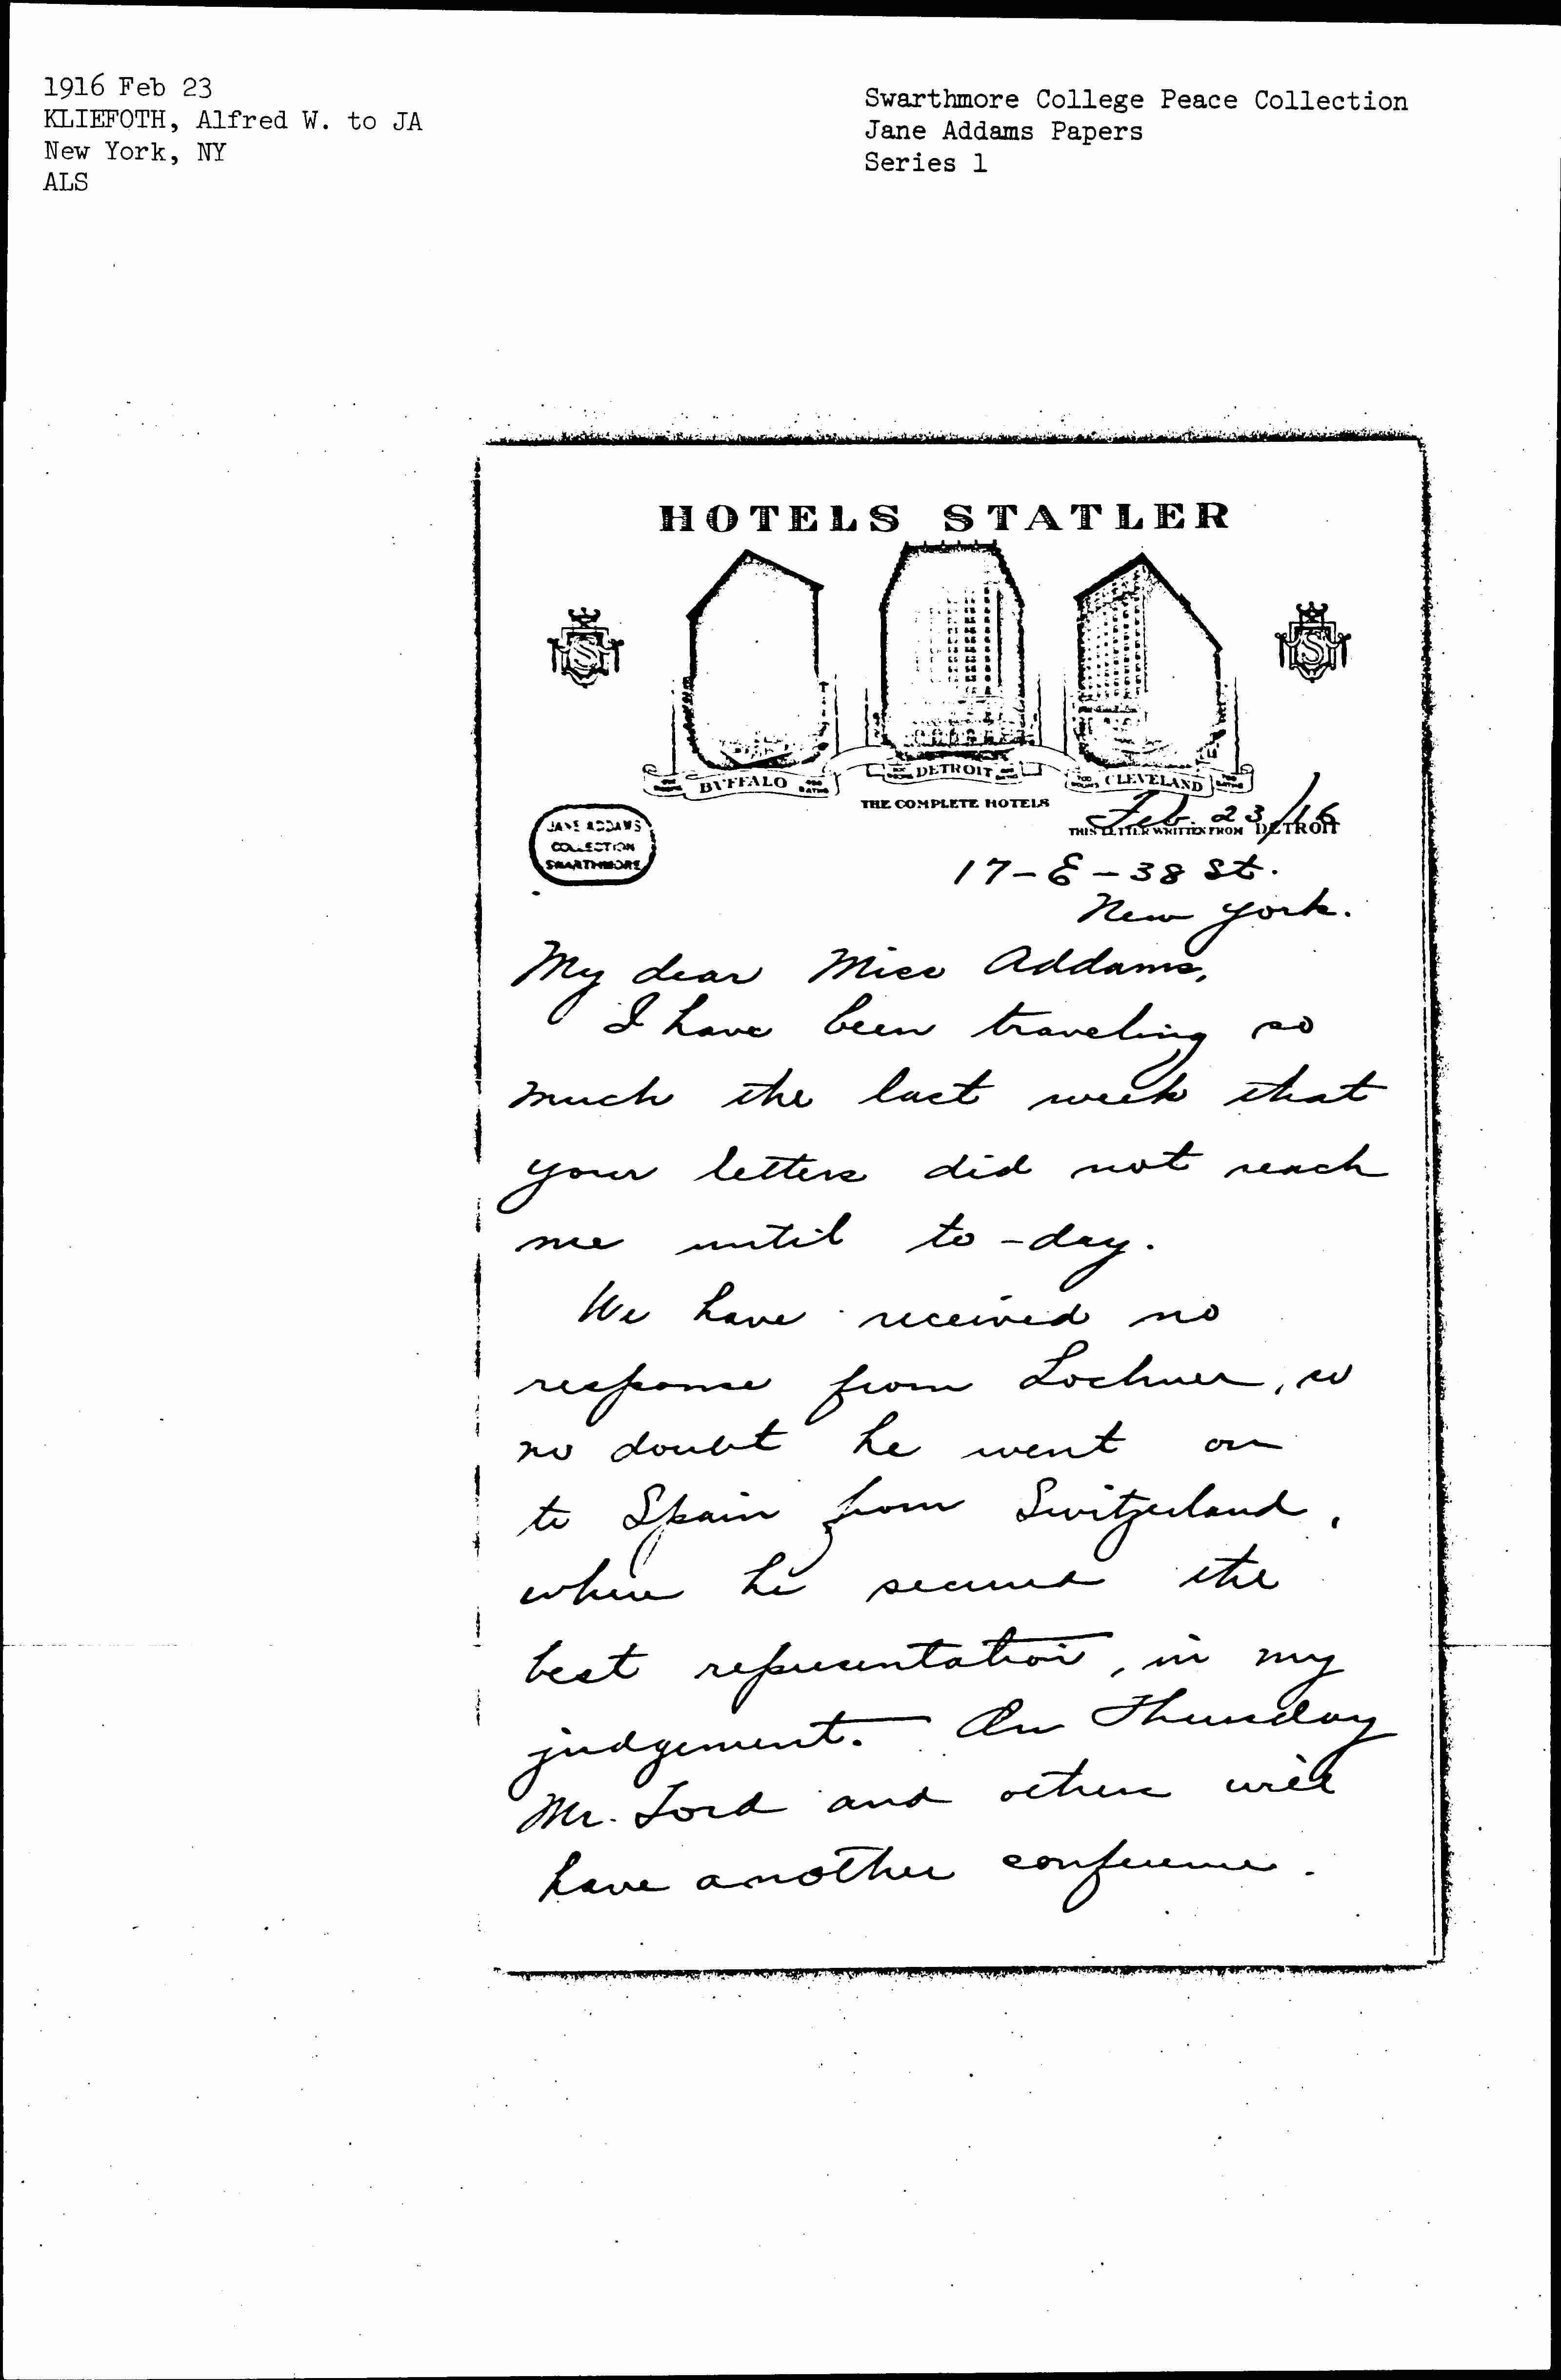 1916 Feb 23
KLIEFOTH, Alfred W. to JA
New York, NY
ALS
Swarthmore College Peace Collection
Jane Addams Papers
Series 1
HOTELS STATLER
BUFFALO
DETROIT
CLEVELAND
THE COMPLETE HOTELS
JANE ADDAMS
COLLECTION
SWARTHMORE
Feb. 23/16
THIS LETTER WRITTEN FROM DETROIT
17-E-38 St.
New York.
My dear Miss Addams,
I have been traveling so
much the last week that
your letters did not reach
me until to-day.
We have received no
response from Lochner, so
no doubt he went on
to Spain from Switzerland,
where he secured the
best representation, in my
judgement. On Thursday
Mr. Ford and others will
have another conference.